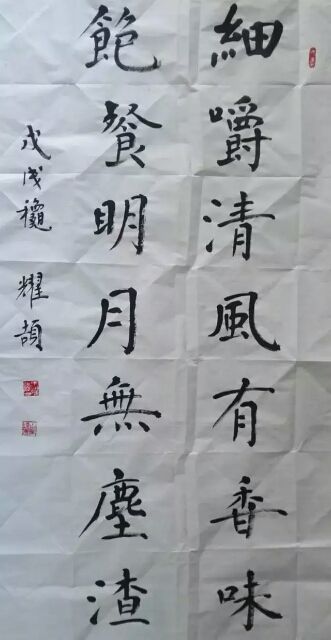 細嚼清風有香味
飽餐明月無塵渣
戊戌穐 耀頡